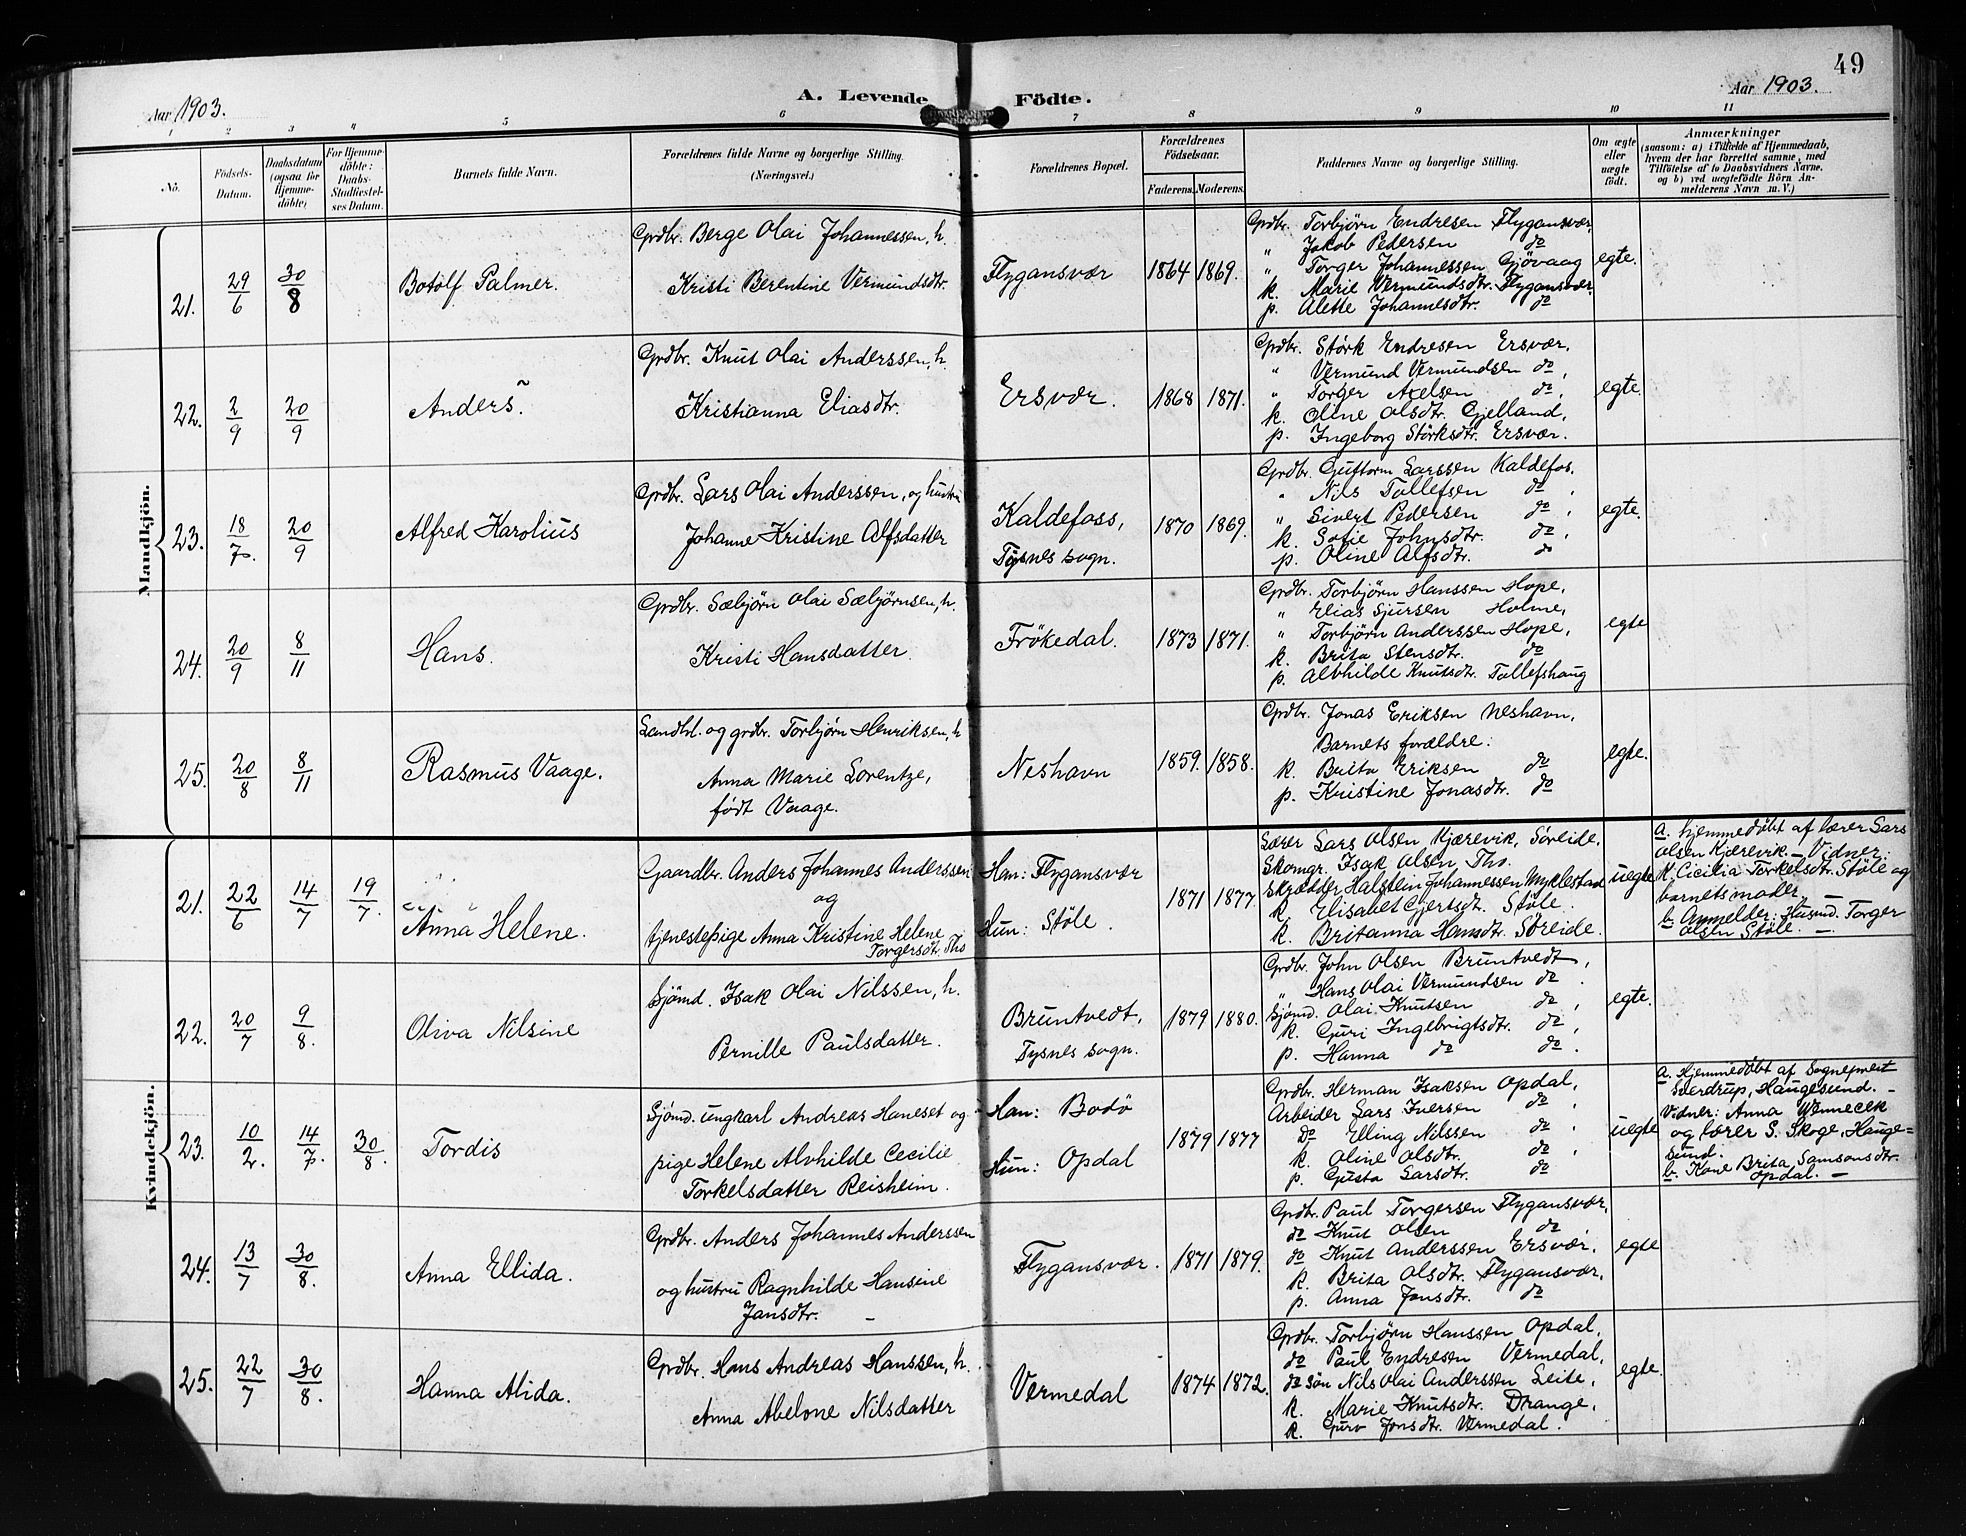 49
Aar 1903.
A. Levende Födte.
Aar 1903.
1 2 3 4 5 6 7 8 9 10 11
No.
Födsels-
Datum.
Daabsdatum
(ogsaa for
Hjemme-
döbte)
For Hjemme-
döbte:
Daabs-
Stadfæstel-
ses Datum.
Barnets fulde Navn.
Forældrenes fulde Navne og borgerlige Stilling.
(Næringsvei.)
Forældrenes Bopæl.
Forældrenes
Födselsaar.
Faderens. Moderens.
Faddernes Navne og borgerlige Stilling.
Om ægte
eller
uægte
födt.
Anmærkninger
(saasom: a) i Tilfælde af Hjemmedaab,
hvem der har forrettet samme, med
Tilföielse af to Daabsvidners Navne,
og b) ved uægtefödte Börn An-
melderens Navn m. V.)
Mandkjön.
21. 29/6 30/8
Botolf Palmer.
Grdbr. Berge Olai Johannessen, h.
Kristi Berentine Vermundsdtr.
Flygansvær
1864 1869.
Grdbr. Torbjørn Endresen Flygansvær,
" Jakob Pedersen do
" Torger Johannessen Gjövaag
k. Marie Vermundsdtr. Flygansvær
p. Alette Johannesdtr. do
egte.
22. 2/9 20/9
Anders
Grdbr. Knut Olai Anderssen, h.
Kristianna Eliasdtr.
Ersvær.
1868 1871.
Grdbr. Störk Endresen Ersvær,
" Vermund Vermundsen do,
" Torger Axelsen do,
k. Oline Olsdtr. Gjelland,
p. Ingeborg Störksdtr. Ersvær.
egte.
23. 18/7. 20/9
Alfred Karolius
Grdbr. Lars Olai Anderssen, og hustru
Johanne Kristine Alfsdatter
Kaldefoss,
Tysnes sogn.
1870 1869.
Grdbr. Guttorm Larssen Kaldefos.
" Nils Tollefsen do,
" Sivert Pedersen do,
k. Sofie Johnsdtr. do,
p. Oline Alfsdtr. do
egte.
24. 20/9 8/11
Hans.
Grdbr. Sæbjörn Olai Sæbjörnsen, h.
Kristi Hansdatter.
Frökedal.
1873 1871.
Grdbr. Torbjörn Hanssen Hope,
" Elias Sjursen Holme,
" Torbjörn Anderssen Hope,
k. Brita Stensdtr. do
p. Alvhilde Knutsdtr. Tollefshaug
egte
25. 20/8 8/11
Rasmus Vaage.
Landhl. og grdbr. Torbjörn Henriksen, h
Anna Marie Lorentze,
födt Vaage.
Neshavn
1859. 1858.
Grdbr. Jonas Eriksen Neshavn,
Barnets forældre:
k. Brita Eriksen do
p. Kristine Jonasdtr. do
egte.
Kvindekjön.
21. 22/6 14/7 19/7.
Anna Helene.
Gaardbr. Anders Johannes Anderssen
og
tjenestepige Anna Kristine Helene
Torgersdtr. Tho
Han: Flygansvær
Hun: Støle.
1871 1877
Lærer Lars Olsen Kjærevik, Søreide.
Skomgr. Isak Olsen Tho.
Skrædder Halstein Johannessen Myklestad
k. Elisabet Gjertsdtr. Støle.
k. Britanna Hansdtr. Søreide.
uegte
a. Hjemmedöbt af lærer Lars
Olsen Kjærevik. – Vidner:
K. Cicilia Torkelsdtr. Støle og
barnets moder. –
b. Anmelder: Husmd. Torger
Olsen Støle. –
22. 20/7 9/8.
Oliva Nilsine
Sjömd. Isak Olai Nilssen, h.
Pernille Paulsdatter.
Bruntvedt,
Tysnes sogn.
1879 1880.
Grdbr. John Olsen Bruntvedt,
" Hans Olai Vermundsen do.
Sjömd. Olai Knutsen do,
k. Guri Ingebrigtsdtr. do,
p. Hanna do do.
egte.
23. 10/2. 14/7. 30/8.
Tordis
Sjömd. ungkarl Andreas Haneset og
pige Helene Alvhilde Cecilie
Torkelsdatter Reisheim.
Han: Bodö
Hun: Opdal
1879 1877
Grdbr. Herman Isaksen Opdal,
Arbeider Lars Iversen do,
Do Elling Nilssen do,
k. Oline Olsdtr. do,
p. Gusta Larsdtr. do
uegte
a. Hjemmedöbt af Sogneprest
Sverdrup, Haugesund. –
Vidner: Anna Wennecek
og lærer S. Skoge, Hauge=
sund.
b. Kone Brita Samsonsdtr.
Opdal. –
24. 13/7 30/8.
Anna Ellida.
Grdbr. Anders Johannes Anderssen
og hustru Ragnhilde Hansine
Jansdtr. –
Flygansvær.
1871 1879.
Grdbr. Paul Torgersen Flygansvær,
do Knut Olsen do,
do Knut Anderssen Ersvær,
k. Brita Olsdtr. Flygansvær,
p. Anna Jonsdtr. do
egte
25. 22/7 30/8.
Hanna Alida.
Grdbr. Hans Andreas Hanssen, h.
Anna Abelone Nilsdatter
Vermedal
1874 1872.
Grdbr. Torbjörn Hanssen Opdal,
do Paul Endresen Vermedal,
do Sön Nils Olai Anderssen Leite,
k. Marie Knutsdtr. Drange,
k. Guro Jonsdtr. Vermedal.
egte.